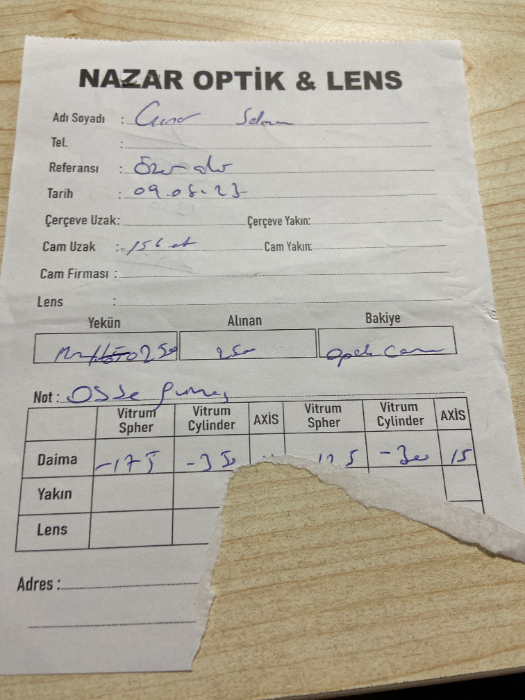 NAZAR OPTİK & LENS
Adı Soyadı :
Tel. :
Referansı :
Tarih : 09.05.23
Çerçeve Uzak: Çerçeve Yakın:
Cam Uzak : 156 Cam Yakın:
Cam Firması :
Lens :
Yekün Alınan Bakiye
250 250
Not : OSSE
Vitrum Spher Vitrum Cylinder AXİS Vitrum Spher Vitrum Cylinder AXİS
Daima -175 -350 -300 15
Yakın
Lens
Adres :